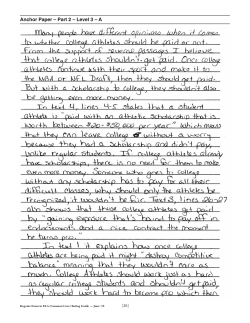 Anchor Paper – Part 2 – Level 3 – A
Many people have different opinions when it comes
to whether college athletes should be paid or not.
From the support of several passages I believe
that college athletes shouldn't get paid. Once college
athletes continue with their sport and make it to
the NBA or NFL Draft, then they should get paid.
But with a scholarship to college, they shouldn't also
be getting even more money.
In text 4, lines 4-5 states that a student
athlete is "paid with an athletic scholarship that is
worth between $20-$50,000 per year." Which means
that they can leave college without a worry
because they had a scholarship and didn't pay,
unlike regular students. If college athletes already
have scholarships, there is no need for them to make
even more money. Someone who goes to college
without any scholarship has to pay for all their
difficult classes, why should only the athletes be
recognized, it wouldn't be fair. Text 3, lines
also shows that these college athletes get paid
by "gaining exposure that's bound to pay off in
endorsements and a nice contract the moment
he turns pro."
In text 1 it explains how once college
athletes are being paid it might "destroy competitive
balance" meaning that they wouldn't care as
much. College Athletes should work just as hard
as regular college students and shouldn't get paid,
they should work hard to become pro which then